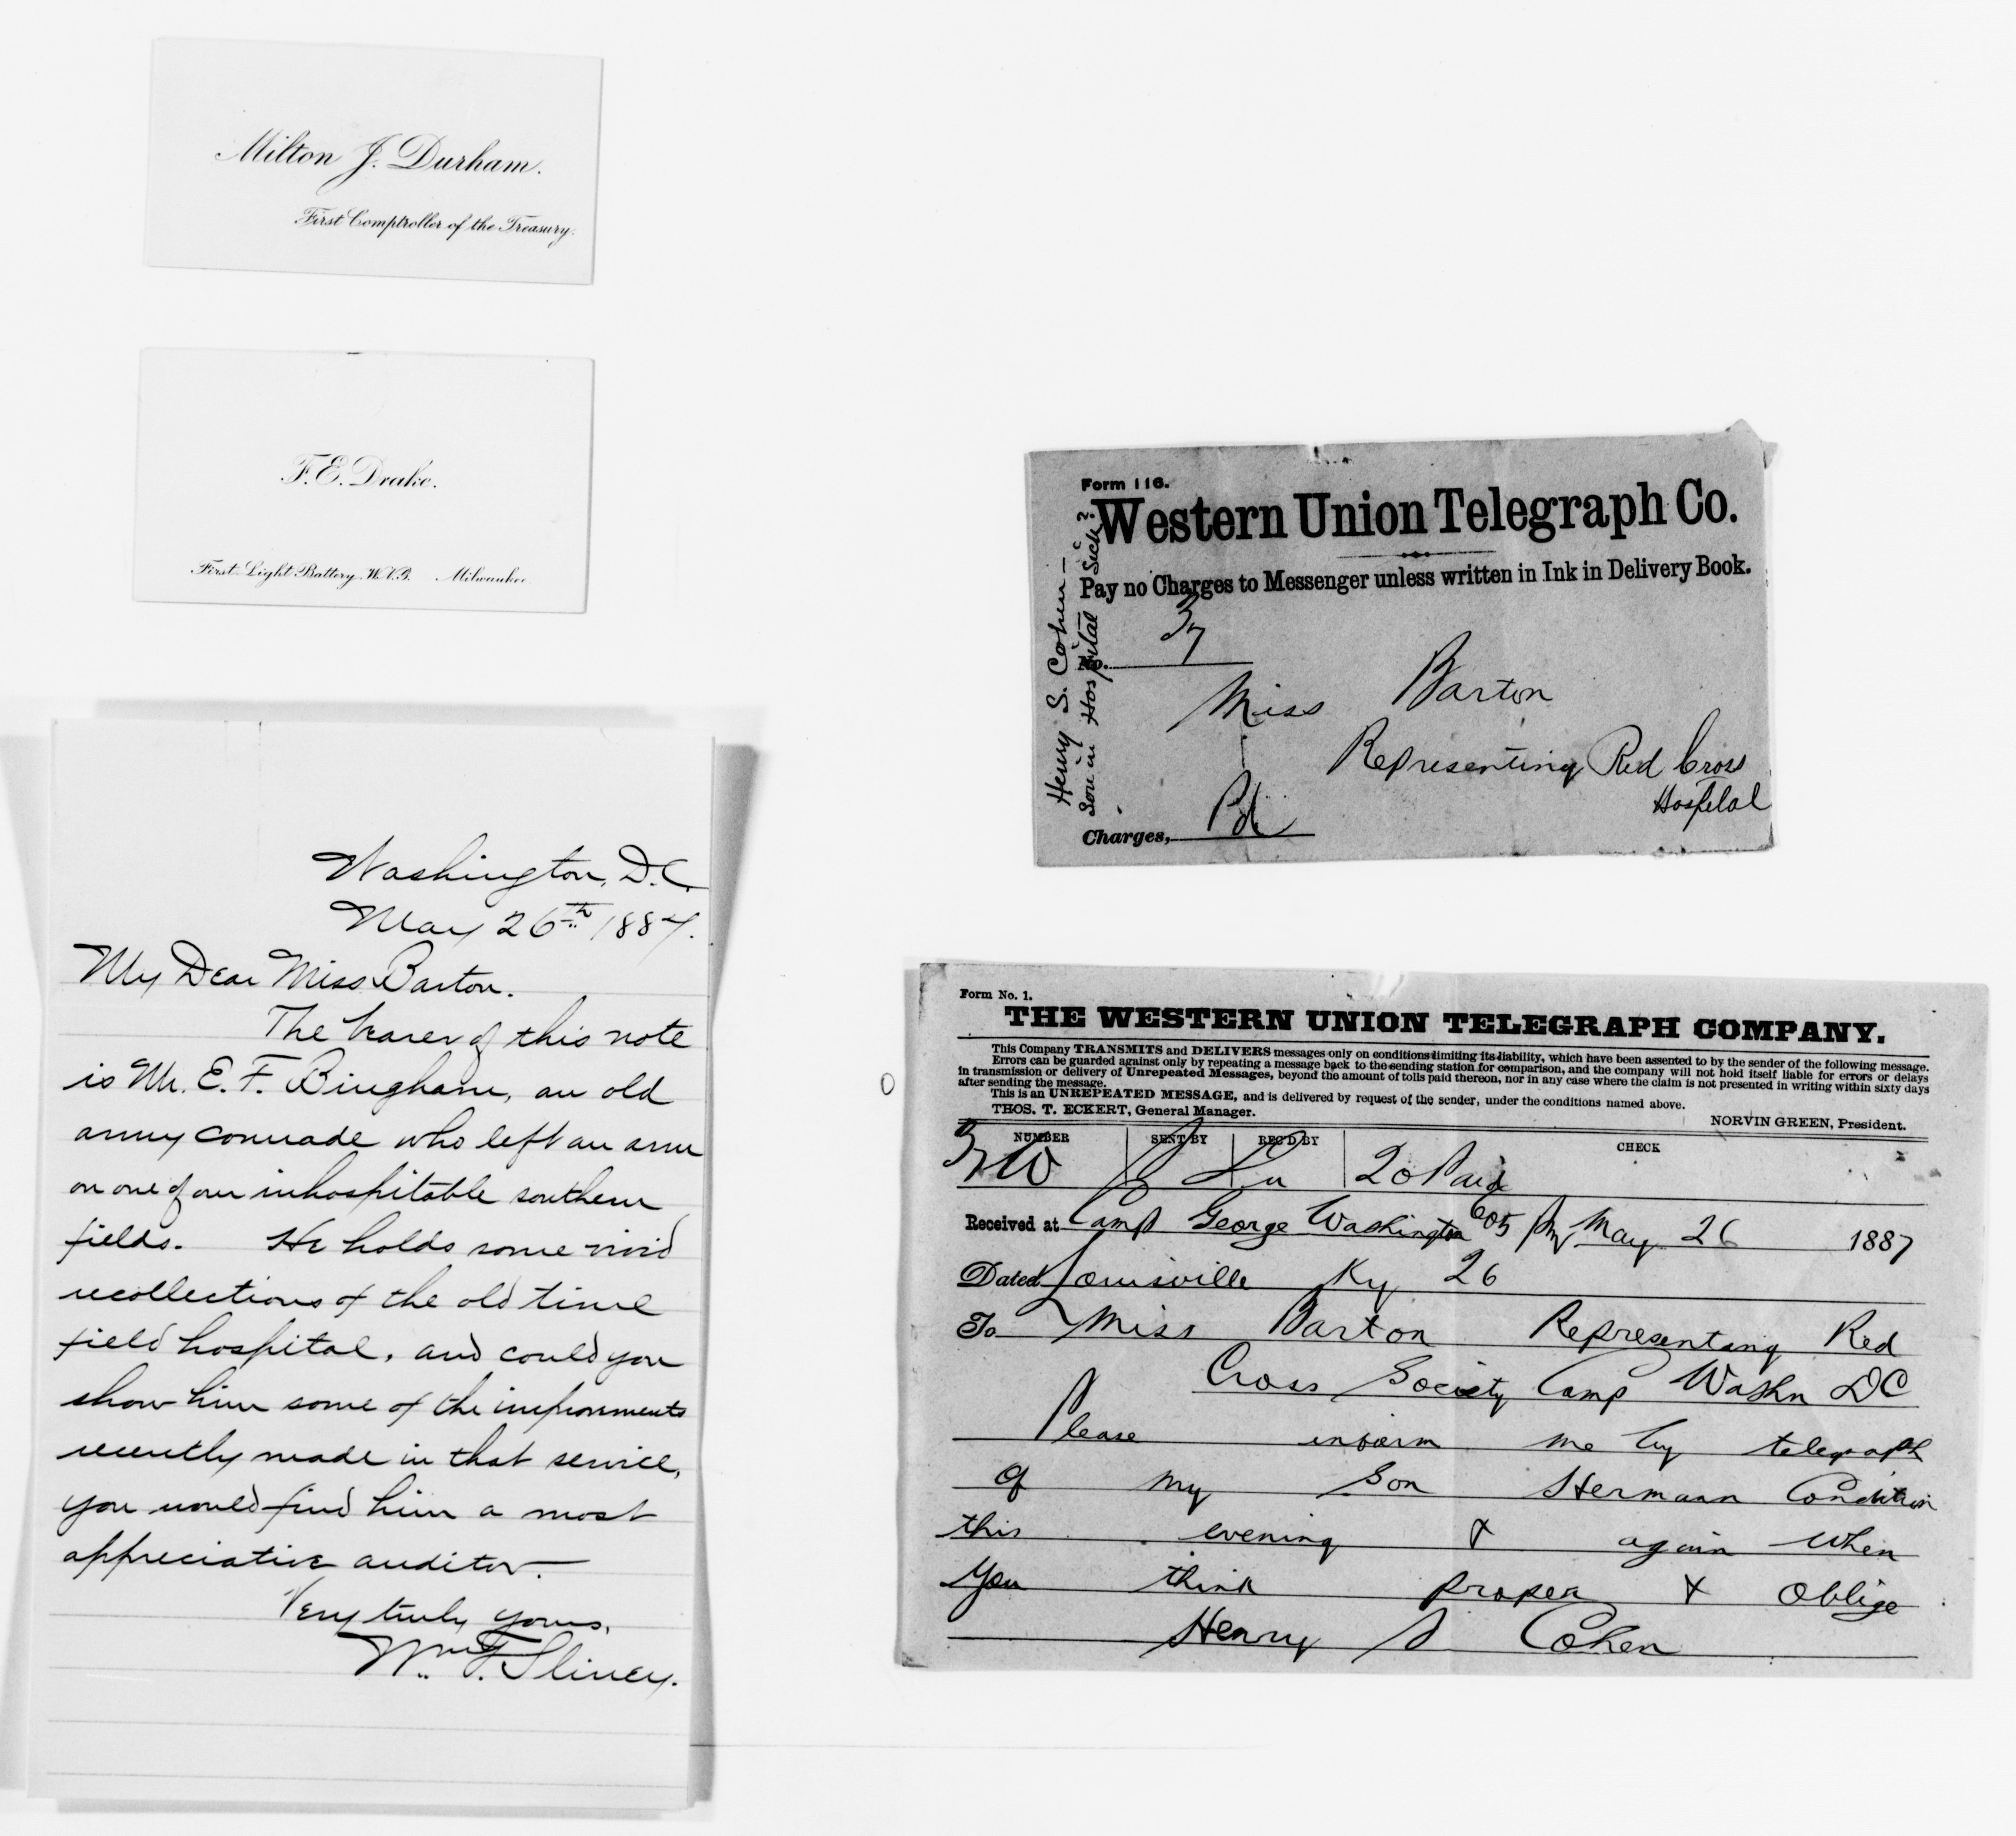 Milton J. Durham.
First Comptroller of the Treasury.
F. E. Drake.
First Light Battery W.V.G. Milwaukee
Washington, D.C.
May 26th 1887.
My Dear Miss Barton.
The bearer of this note
is Mr. E. F. Bingham, an old
army comrade who left an arm
on one of our inhospitable southern
fields. He holds some vivid
recollections of the old time
field hospital, and could you
show him some of the improvements
recently made in that service,
you would find him a most
appreciative auditor.
Very truly yours,
Wm. F. Sliney.
Form 116.
Western Union Telegraph Co.
Pay no Charges to Messenger unless written in Ink in Delivery Book.
No. 37
Miss Barton
Representing Red Cross
Hospital
Charges, Pd
Henry S. Cohen —
Son in Hospital Sick?
Form No. 1.
THE WESTERN UNION TELEGRAPH COMPANY.
This Company TRANSMITS and DELIVERS messages only on conditions limiting its liability, which have been assented to by the sender of the following message.
Errors can be guarded against only by repeating a message back to the sending station for comparison, and the company will not hold itself liable for errors or delays
in transmission or delivery of Unrepeated Messages, beyond the amount of tolls paid thereon, nor in any case where the claim is not presented in writing within sixty days
after sending the message.
This is an UNREPEATED MESSAGE, and is delivered by request of the sender, under the conditions named above.
THOS. T. ECKERT, General Manager. NORVIN GREEN, President.
NUMBER SENT BY REC'D BY CHECK
20 Paid
Received at Camp George Washington 605 Pm May 26 1887
Dated Louisville Ky 26
To Miss Barton Representing Red
Cross Society Camp Washn DC
Please inform me by telegraph
of my Son Hermann Condition
this evening & again when
you think proper & Oblige
Henry S Cohen